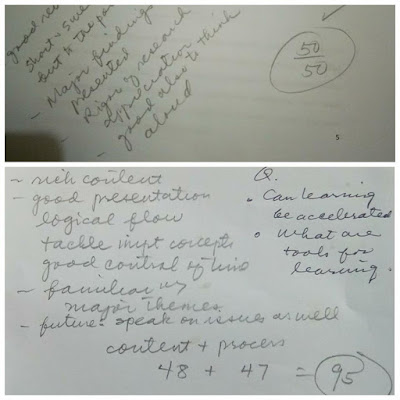 good re
short & swe
but to the po
- Major findings
presented
Rigor of research
- appreciation
good also to think
aloud
50
50
5
- rich content
- good presentation
logical flow
tackle impt concepts
good control of time
- familiar w/
major themes
- future: speak on issues as well
content + process
48 + 47 = 95
Q.
• Can learning
be accelerated
• What are
tools for
learning.